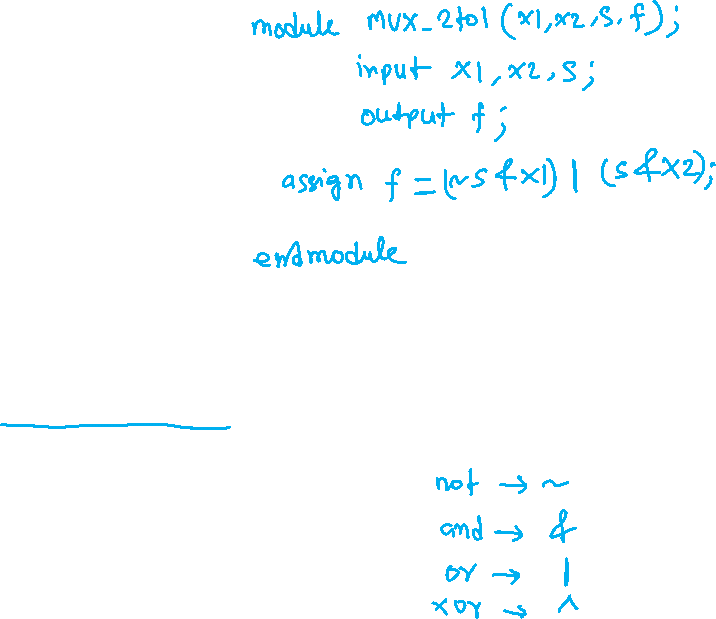 module mux_2to1 (x1,x2,s,f);
input x1,x2,s;
output f;
assign f = (~s&x1) | (s&x2);
endmodule
not → ~
and → &
or → |
xor → ^